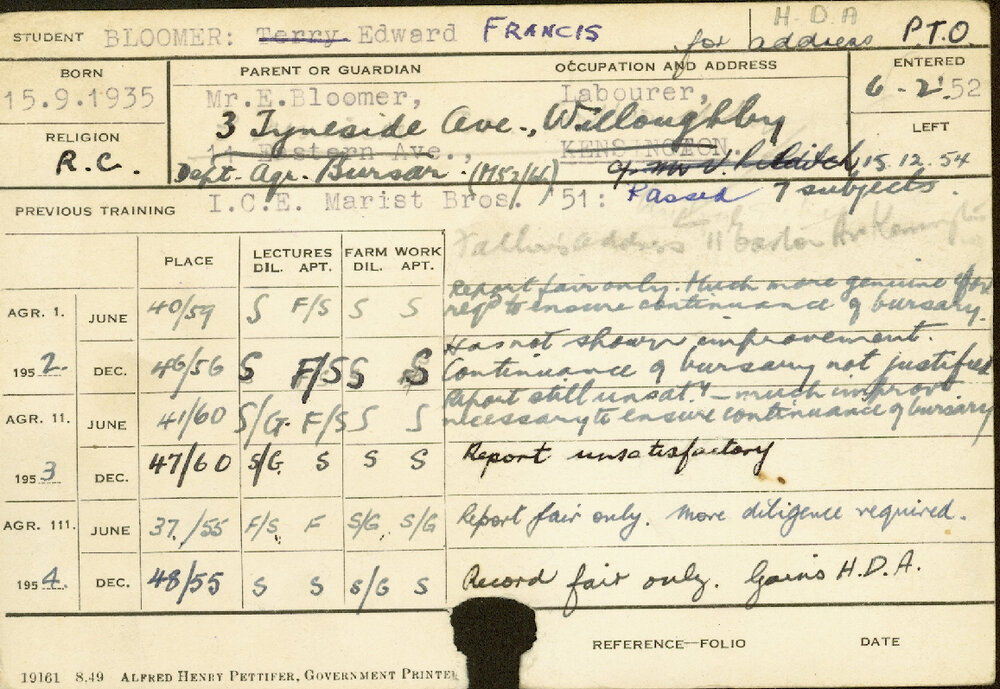 H.D.A
STUDENT BLOOMER: Terry Edward FRANCIS for address P.T.O.
BORN PARENT OR GUARDIAN OCCUPATION AND ADDRESS ENTERED
15.9.1935 Mr.E.Bloomer, Labourer, 6-2.52
3 Tyneside Ave., Willoughby
RELIGION LEFT
R.C. 11 Eastern Ave., 15.12.54
Dept. Agr. Bursar. (M52/66)
PREVIOUS TRAINING I.C.E. Marist Bros. '51: Passed 7 subjects.
Father's address 11
PLACE LECTURES FARM WORK
DIL. APT. DIL. APT.
AGR. 1. JUNE 40/59 S F/S S S Report fair only. Much more genuine
to ensure continuance of bursary.
1952 DEC. 46/56 S F/S S S Has not shown improvement.
Continuance of bursary not justified
AGR. 11. JUNE 41/60 S/G. F/S S S Report still unsaty - much improvt
necessary to ensure continuance of bursary
1953 DEC. 47/60 S/G. S S S Report unsatisfactory
AGR. 111. JUNE 37/55 F/S F S/G S/G Report fair only. More diligence required.
1954 DEC. 48/55 S S S/G S Record fair only. Gains H.D.A.
REFERENCE—FOLIO DATE
19161 8.49 ALFRED HENRY PETTIFER, GOVERNMENT PRINTE